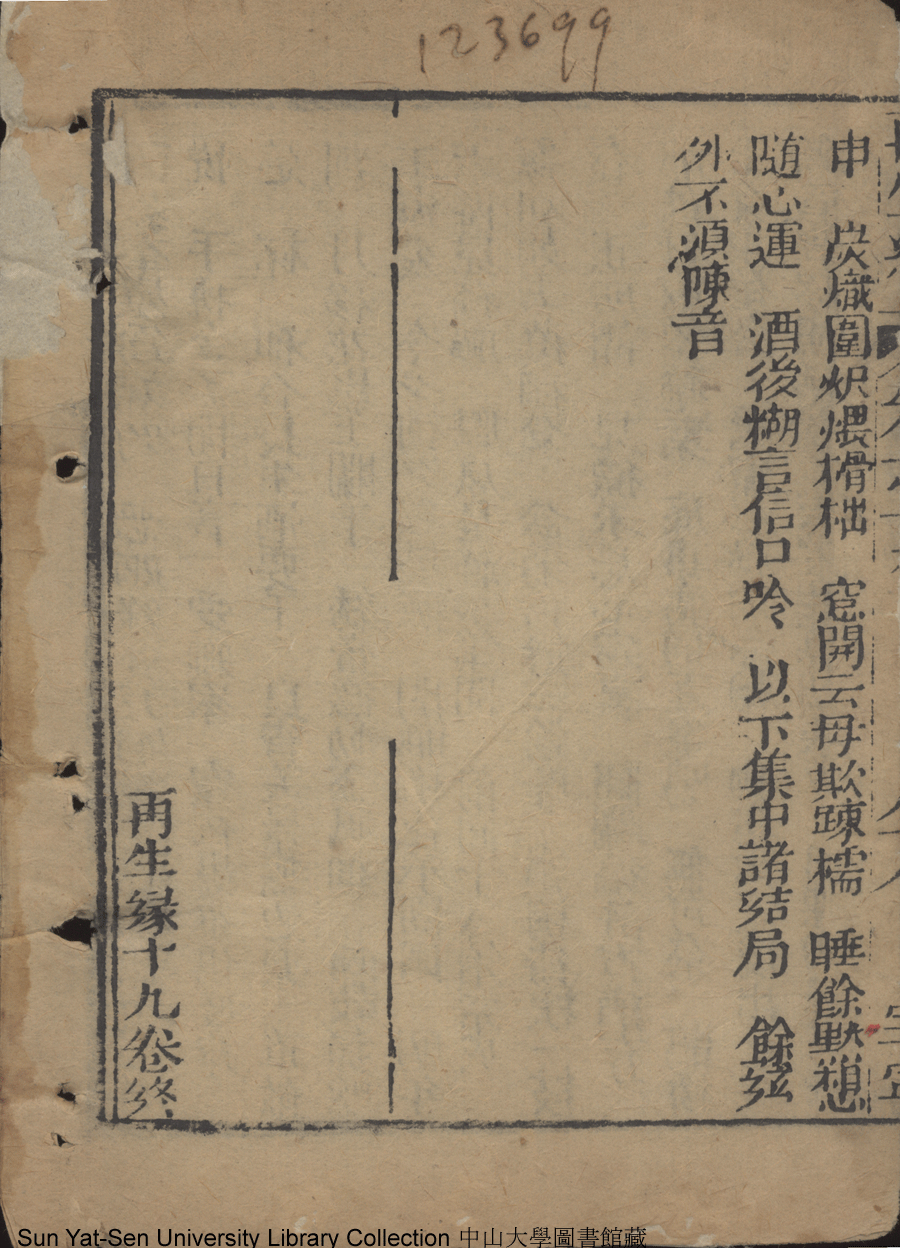 123699
申　炭熾圍炉煨榾柮　窓開云母欺踈櫺　睡餘默想
随心運　酒後糊言信口吟　以下集中諸结局　餘弦
外不須陳音
再生縁十九卷終
Sun Yat-Sen University Library Collection 中山大學圖書館藏